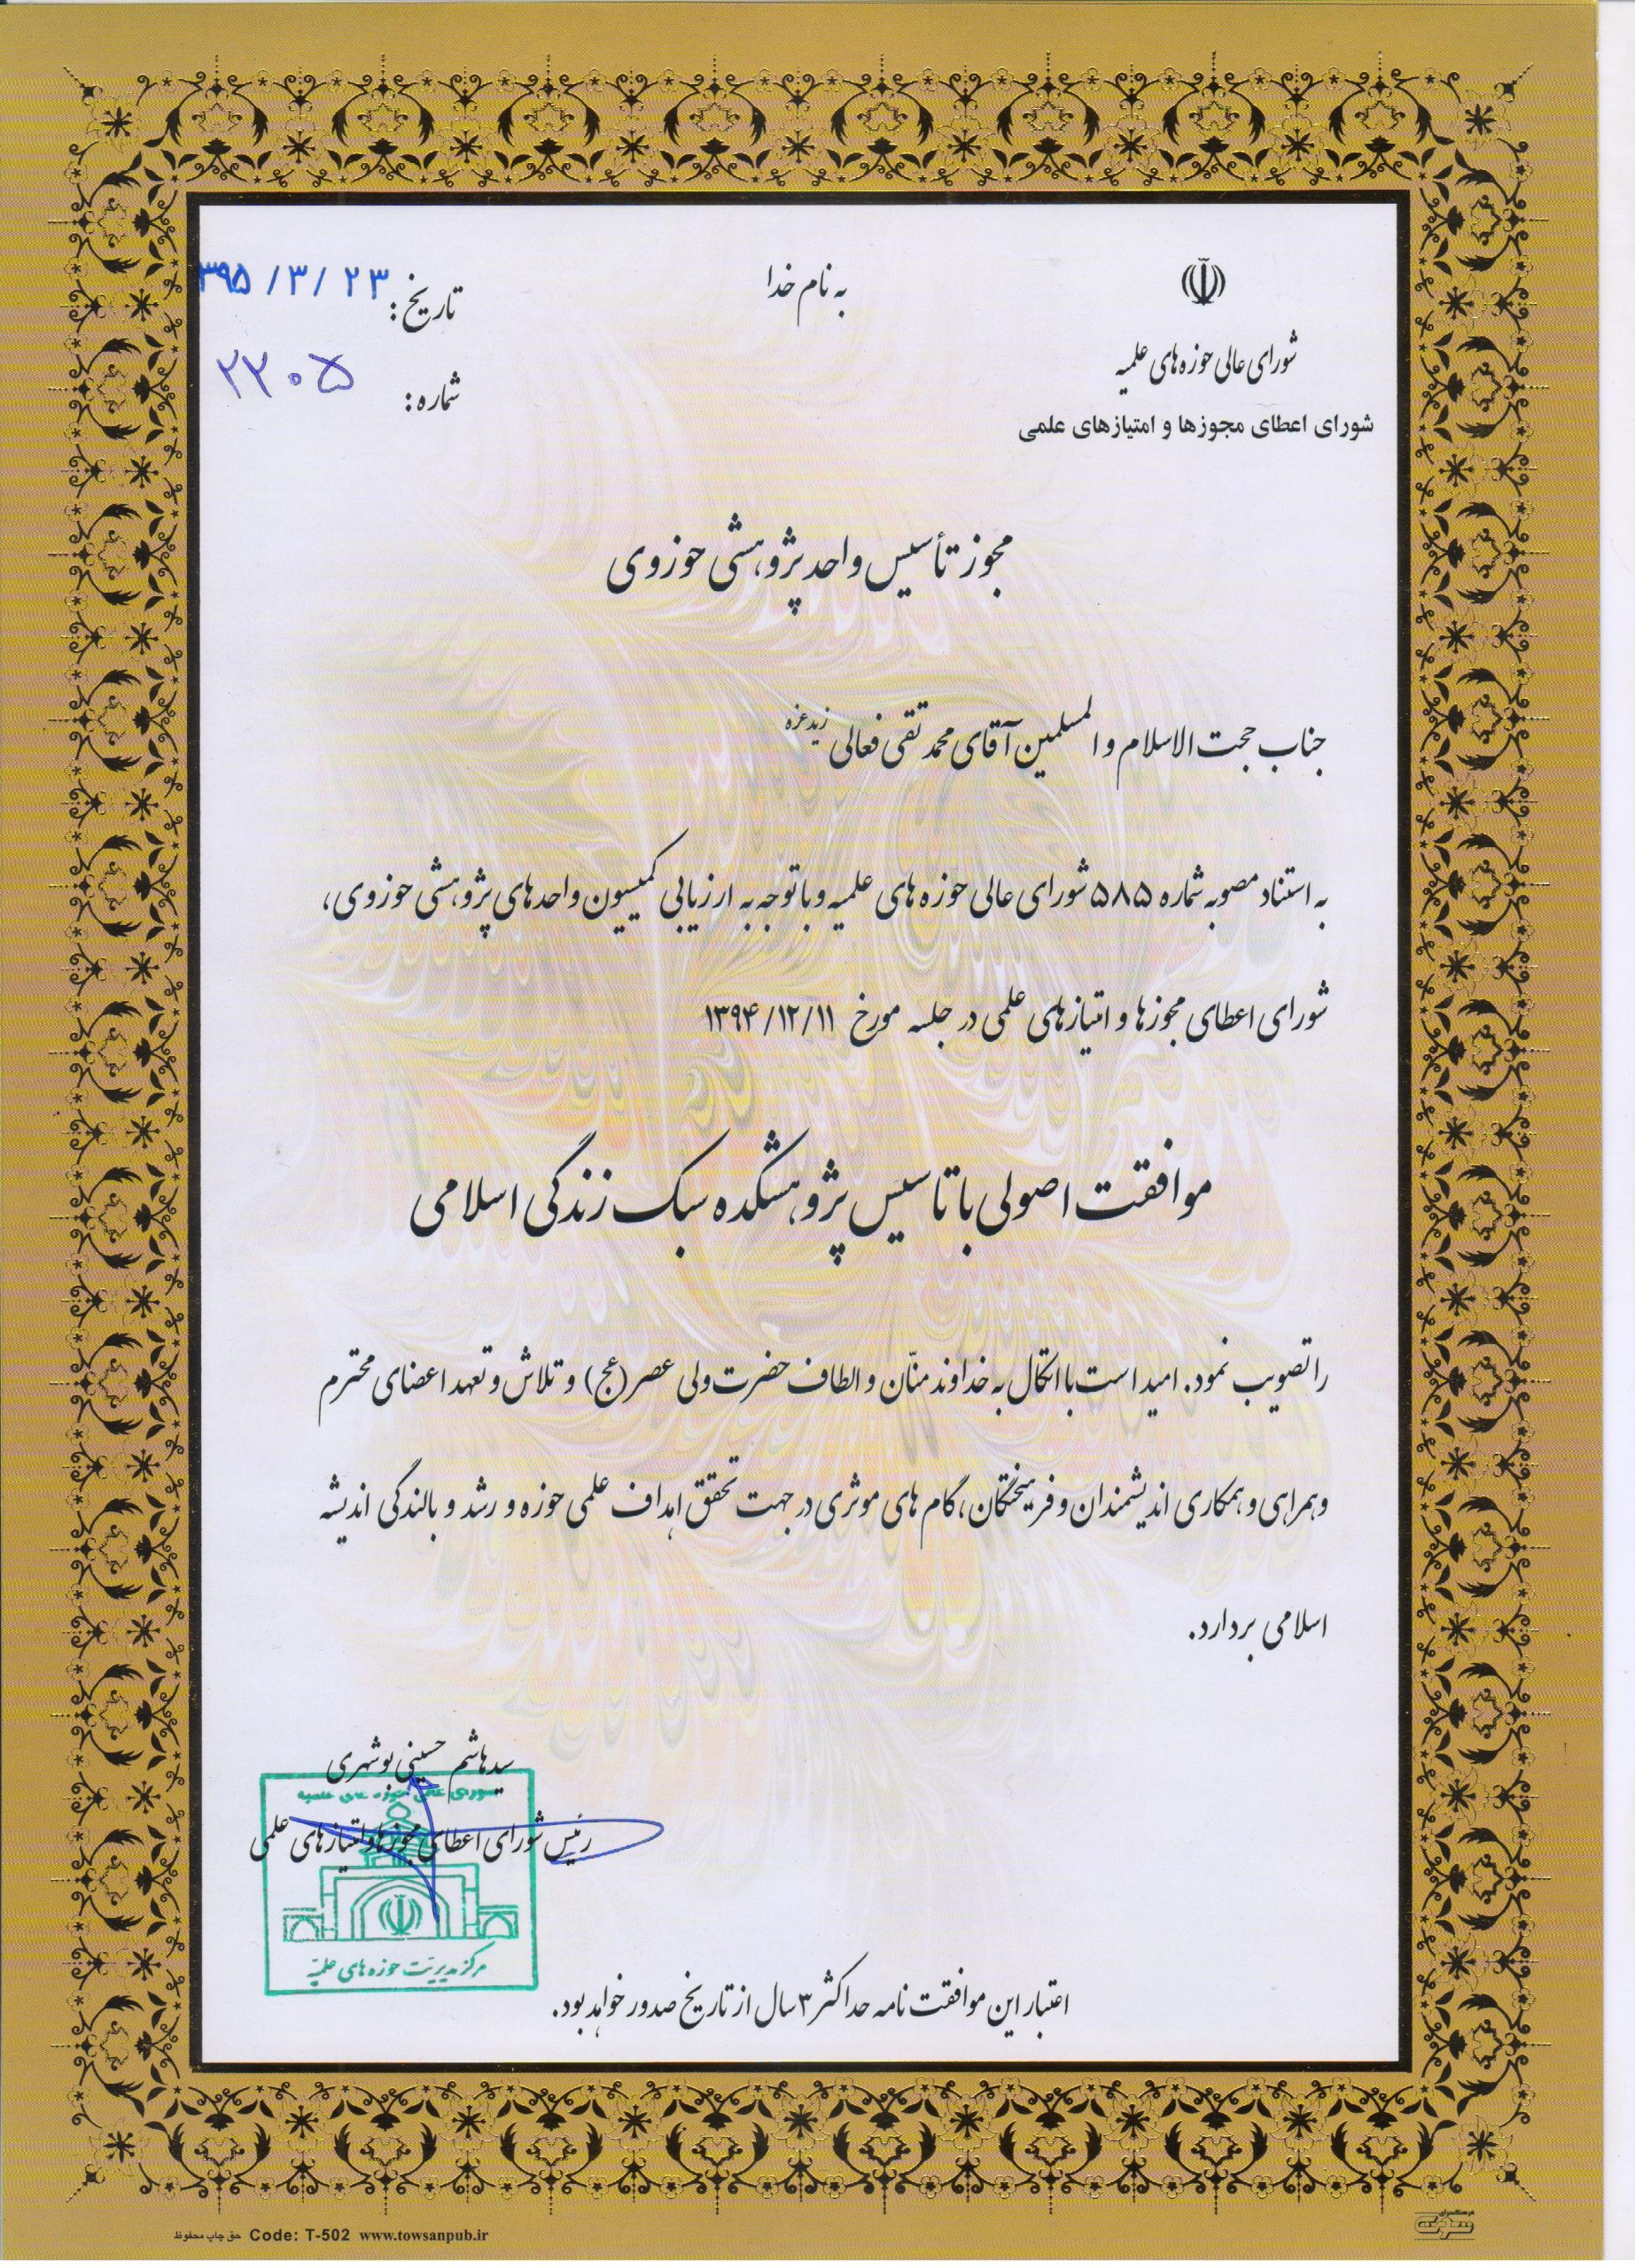 به نام خدا
شورای عالی حوزه های علمیه
شورای اعطای مجوزها و امتیازهای علمی
تاریخ: ۳۹۵/۳/۲۳
شماره: ۲۲۰۵
مجوز تأسیس واحد پژوهشی حوزوی
جناب حجت الاسلام و المسلمین آقای محمد تقی فعالی زید عزه
به استناد مصوبه شماره ۵۸۵ شورای عالی حوزه های علمیه و با توجه به ارزیابی کمیسیون واحدهای پژوهشی حوزوی،
شورای اعطای مجوزها و امتیازهای علمی در جلسه مورخ ۱۳۹۴/۱۲/۱۱
موافقت اصولی با تاسیس پژوهشکده سبک زندگی اسلامی
را تصویب نمود. امید است با اتکال به خداوند منّان و الطاف حضرت ولی عصر (عج) و تلاش و تعهد اعضای محترم
و همراهی و همکاری اندیشمندان و فرهیختگان، گام های موثری در جهت تحقق اهداف علمی حوزه و رشد و بالندگی اندیشه
اسلامی بردارد.
سید هاشم حسینی بوشهری
شورای عالی حوزه های علمیه
رئیس شورای اعطای مجوزها و امتیازهای علمی
مرکز مدیریت حوزه های علمیّه
اعتبار این موافقت نامه حداکثر ۳ سال از تاریخ صدور خواهد بود.
حق چاپ محفوظ Code: T-502 www.towsanpub.ir